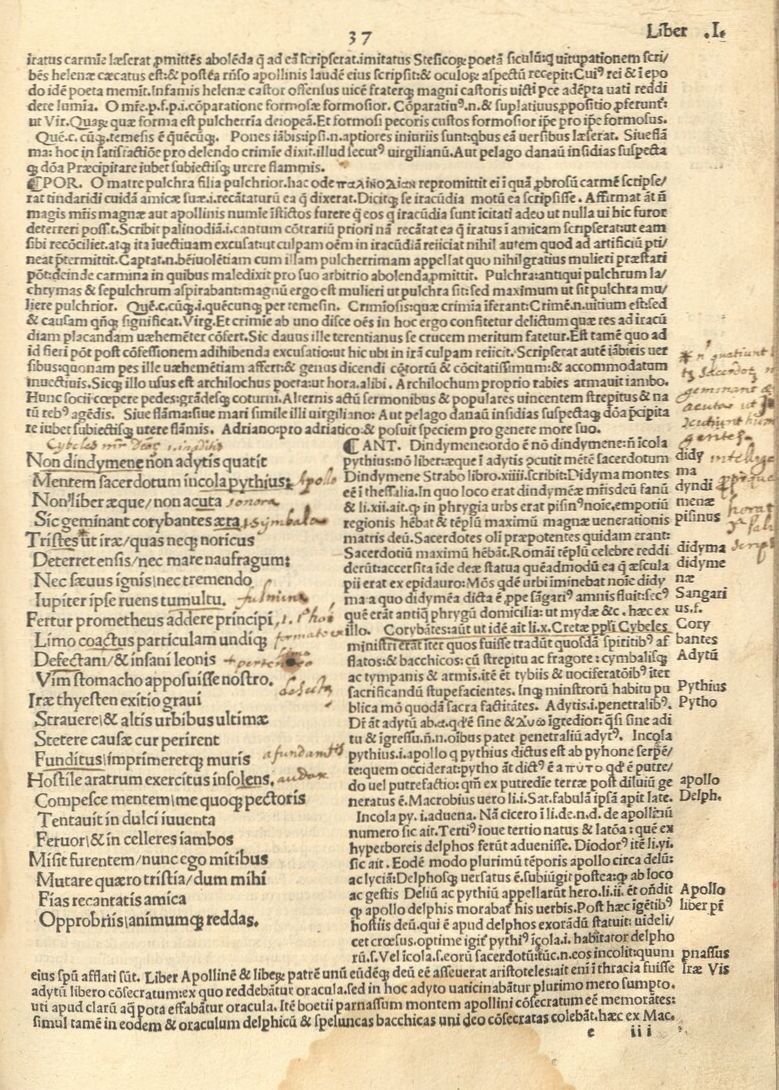 37
Liber .I.
iratus carmīe læserat ꝓmittēs abolēda q̄ ad eā scripserat. imitatus Stesicorꝫ poetā siculū: q̄ uitupationem scri/
bēs helenæ cæcatus est: & postēa rñso apollinis laudē eius scripsit: & oculorꝫ aspectū recepit: Cui⁹ rei & ī epo
do idē poeta memīt. Infamis helenæ castor offensus uicē fraterqꝫ magni castoris uicti pce adēpta uati reddi
dere lumīa. O mr̄e.p.f.p.i. cōparatione formosæ formosior. Cōparatiu⁹.n. & suplatiuus, ppositio ꝓferunt:
ut Vir. Quaꝝ quæ forma est pulcherrīa deiopeā. Et formosi pecoris custos formosior ipē pro ipē formosus.
Quē.c. cūqꝫ. temesis ē quēcūqꝫ. Pones iābis: ipsi.n. aptiores iniuriis sunt: qbus eā uersibus læserat. Siue flā
ma: hoc in satisfactiōe pro delendo crimīe dixit. illud secut⁹ uirgilianū. Aut pelago danaū insidias suspecta
qꝫ dōa Præcipitare iubet subiectisqꝫ urere flammis.
POR. O matre pulchra filia pulchrior. hac ode παλινοδιαν repromittit ei ī quā ꝓbrosū carmē scripse/
rat tindaridi cuidā amicæ suæ.i. recātaturū ea q̄ dixerat. Dicitqꝫ se iracūdia motū ea scripsisse. Affirmat āt ñ
magis mr̄is magnæ aut apollinis numīe īstictos furere qꝫ eos q iracūdia sunt īcitati adeo ut nulla ui hic furor
deterreri poss̄t. Scribit palinodiā.i. cantum cōtrariū priori nā recātat ea q̄ iratus ī amicam scripserat: ut eam
sibi recōciliet. atqꝫ ita īuectiuam excusat: ut culpam oēm in iracūdiā reiiciat nihil autem quod ad artificiū pti/
neat p̄termittit. Captat.n. bēiuolētiam cum illam pulcherrimam appellat quo nihil gratius mulieri præstari
pōt: deinde carmina in quibus maledixit pro suo arbitrio abolenda, pmittit. Pulchra: antiqui pulchrum la/
chrymas & sepulchrum aspirabant: magnū ergo est mulieri ut pulchra sit: sed maximum ut sit pulchra mu/
liere pulchrior. Quē.c. cūqꝫ.i. quēcunqꝫ per temesin. Crimīosis: quæ crimīa īferant: Crimē.n. uitium est: sed
& causam qñqꝫ significat. Virg. Et crimīe ab uno disce oēs in hoc ergo confitetur delictum quæ res ad iracū
diam placandam uæhemēter cōfert. Sic dauus ille terentianus se crucem meritum fatetur. Est tamē quo ad
id fieri pōt post cōfessionem adhibenda excusatio: ut hic ubi in irā culpam reiicit. Scripserat autē iābieis uer
sibus: quonam pes ille uæhemētiam affert: & genus dicendi cētortū & cōcitatissimum: & accommodatum
inuectiuis. Sicqꝫ illo usus est archilochus poeta: ut hora. alibi. Archilochum proprio rabies armauit iambo.
Hunc socii cœpere pedes: grādesqꝫ coturni. Alternis actū sermonibus & populares uincentem strepitus & na
tū reb⁹ agēdis. Siue flāma: siue mari simile illi uirgiliano: Aut pelago danaū insidias suspectaqꝫ dōa p̄cipita
re iubet subiectisqꝫ urere flāmis. Adriano: pro adriatico: & posuit speciem pro genere more suo.
Non dindymene non adytis quatit
Mentem sacerdotum incola pythius:
Apollo
Non liber æque/ non acuta
sonora
Sic geminant corybantes æra
cymbala
Tristes ut iræ/ quas neqꝫ noricus
Deterret ensis/ nec mare naufragum:
Nec sæuus ignis\ nec tremendo
Iupiter ipse ruens tumultu.
fulmine
Fertur prometheus addere principi
Limo coactus particulam undiqꝫ
Defectam/ & insani leonis
Vim stomacho apposuisse nostro.
Iræ thyesten exitio graui
Strauere\ & altis urbibus ultimæ
Stetere causæ cur perirent
Funditus\ imprimeretqꝫ muris
a fundamētis
Hostile aratrum exercitus insolens.
audax
Compesce mentem\ me quoqꝫ pectoris
Tentauit in dulci iuuenta
Feruor\ & in celleres iambos
Misit furentem/ nunc ego mitibus
Mutare quæro tristia/ dum mihi
Fias recantatis amica
Opprobriis\ animumqꝫ reddas.
CANT. Dindymene: ordo ē nō dindymene: ñ īcola
pythius: nō liber: æque ī adytis ꝓcutit mētē sacerdotum
Dindymene Strabo libro.xiiii. scribit: Didyma montes
eē ī thessalia. In quo loco erat dindymēæ mr̄isdeū fanū
& li.xii.ait. ꝙ in phrygia urbs erat pisin⁹ noīe. emporiū
regionis hēbat & tēplū maximū magnæ uenerationis
matris deū. Sacerdotes oli præpotentes quidam erant:
Sacerdotiū maximū hēbāt. Romāi tēplū celebre reddi
derūt: accersita īde deæ statua quēadmodū ea q̄ æscula
pii erat ex epidauro. Mōs qdē urbi īminebat noīe didy
ma: a quo didymēa dicta ē. ppe sāgari⁹ amnis fluit: sec⁹
quē erāt antiq̄ phrygū domicilia: ut mydæ &c. hæc ex
illo. Corybātes: aūt ut idē ait li.x. Cretæ ppsi Cybeles
ministri erāt iter quos fuisse tradūt quosdā spirītib⁹ af
flatos: & bacchicos: cū strepitu ac fragore: cymbalisqꝫ
ac tympanis & armis. itē et tybiis & uociferatōib⁹ iter
sacrificandū stupefacientes. Inqꝫ minstrorū habitu pu
blica mō quodā sacra factitātes. Adytis.i. penetralib⁹.
Dī āt adytū ab.α.qd'ē sine & δυω īgredior: q̄si sine adi
tu & īgressu. ñ.n. oībus patet penetraliū adyt⁹. Incola
pythius.i. apollo q pythius dictus est ab pyhone serpē/
te: quem occiderat: pytho āt dict⁹ ē απυτο qd' ē putre/
do uel putrefactio: qm̄ ex putredīe terræ post diluiū ge
neratus ē. Macrobius uero li.i. Sat. fabulā ipsā apit late.
Incola py.i. aduena. Nā cicero ī li.de.n.d. de apollīnū
numero sic ait. Terti⁹ ioue tertio natus & latōa: quē ex
hyperboreis delphos ferūt aduenisse. Diodor⁹ itē li.yi.
sic ait. Eodē modo plurimū tēporis apollo circa delū:
ac lyciā: Delphosqꝫ uersatus ē. subiūgit postea: ꝙ ab loco
ac gestis Deliū ac pythiū appellarūt hero.li.ii. et ōndit
ꝙ apollo delphis morabat' his uerbis. Post hæc īgētib⁹
hostiis deū. qui ē apud delphos exorādū statuit: uideli/
cet crœsus. optime igit' pythi⁹ īcola.i. habitator delpho
rū.s. Vel īcola.s. eorū sacerdotū: tūc.n. eos incolit: quum
didy
ma
dyndi
menæ
pisinus
didyma
didyme
næ
Sangari
us.f.
Cory
bantes
Adytū
Pythius
Pytho
apollo
Delph.
Apollo
liber pr̄
pnassus
Iræ Vis
eius spū afflati sūt. Liber Apollinē & liberꝫ patrē unū eūdēqꝫ deū eē asseuerat aristoteles: ait enī ī thracia fuisse
adytū libero cōsecratum: ex quo reddebātur oracula. sed in hoc adyto uaticinabātur plurimo mero sumpto.
uti apud clarū aq̄ pota effabātur oracula. Itē boetii parnassum montem apollini cōsecratum eē memorātes:
simul tamē in eodem & oraculum delphicū & speluncas bacchicas uni deo cōsecratas colebāt. hæc ex Mac.
e iii